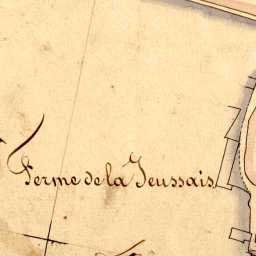 Ferme de la Jeussais